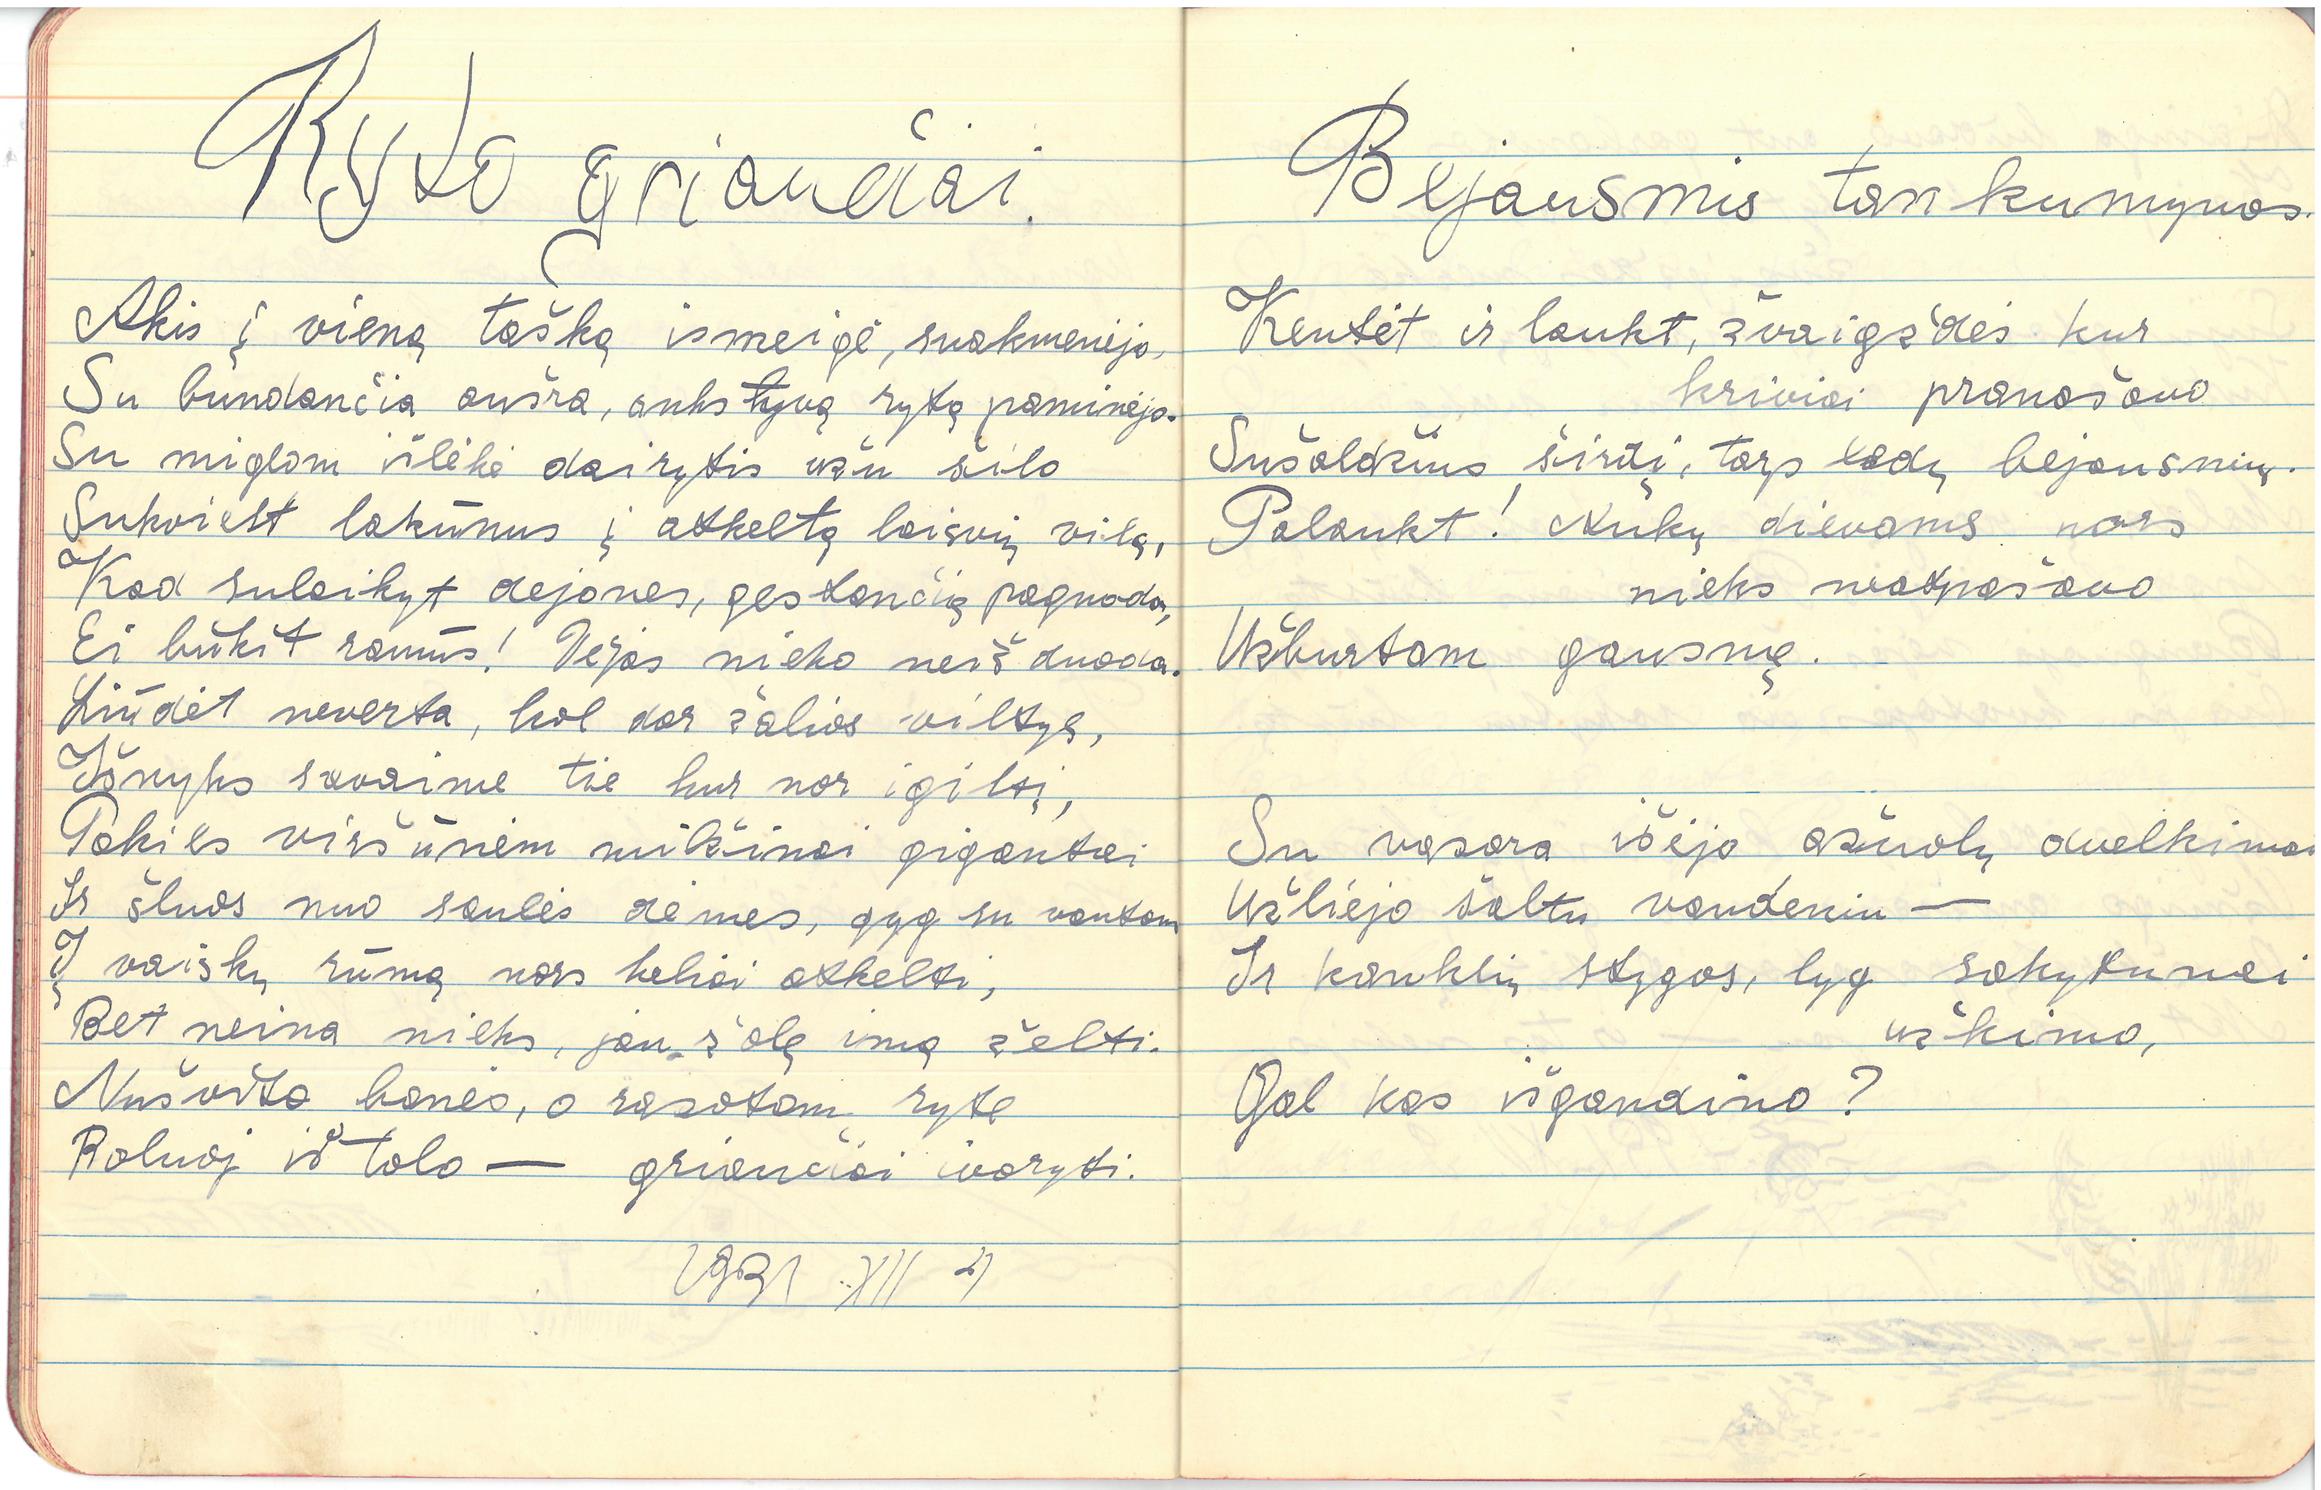 Ryto griaučiai.
Akis į vieną tašką ismeigė, suakmenėjo,
Su bundančia aušra, ankstyvą rytą paminėjo.
Su miglom išlėkė dairytis užu šilo
Sukviest lakūnus į atkeltą laisvių vilą,
Kad sulaikyt dejones, gęstančią paguodą,
Ei būkit ramūs! Vėjas nieko neišduoda.
Liūdėt neverta, kol dar žalios viltys,
Išnyks savaime tie kur nor įgilti,
Pakils viršūnėm milžinai gigantai
Ir šluos nuo saulės dėmes, gyg su vantom
Į vaiskų rūmą nors keliai atkelti,
Bet neina nieks, jau žolę ima želti.
Nušvito bonės, o rasotam ryte
Raluoj iš tolo — griaučiai ivaryti.
1931 XII 4
Bejausmis tankumynas.
Kentėt ir laukt, žvaigždės kur
kriviai pranašavo
Sušaldžius širdį, tarp ledų bejausmių.
Palaukt! Aukų dievams nors
nieks neatnašavo
Užburtam gausmę.
Su vasara išėjo ąžuolų dvelkimai
Užliejo šaltu vandeniu —
Ir kanklių stygos, lyg sakytumei
užkimo,
Gal kas išgandino?